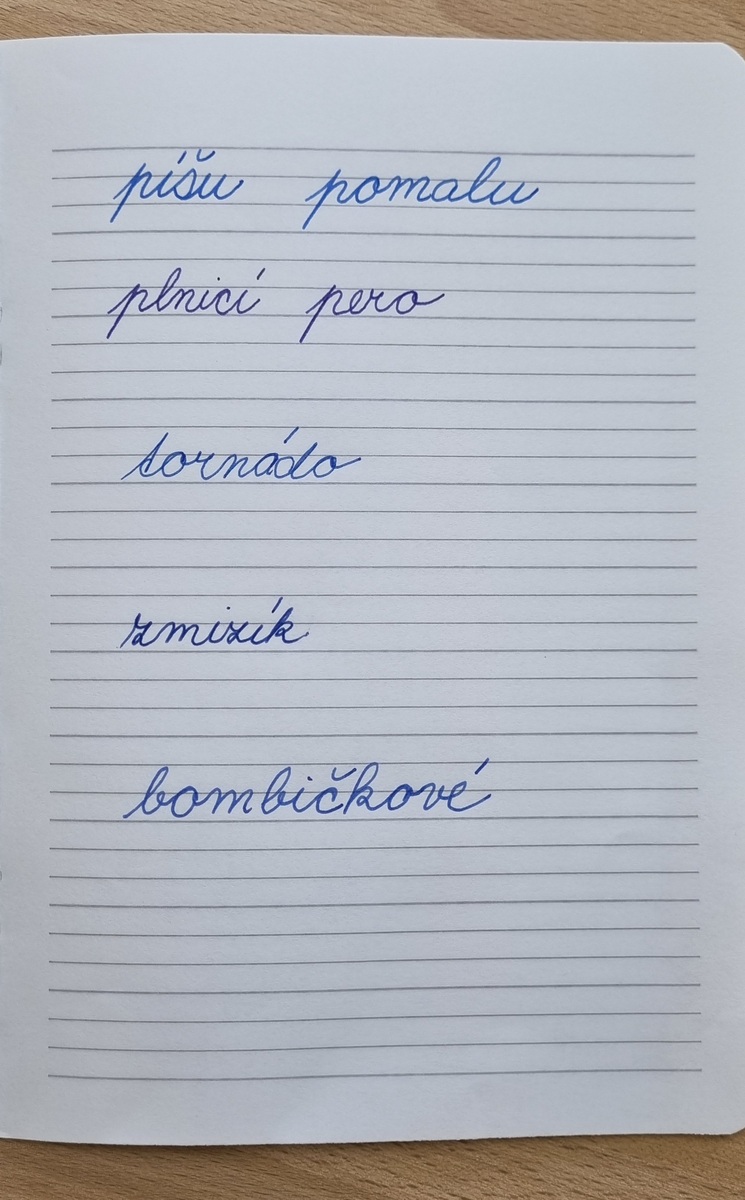 píšu pomalu
plnicí pero
tornádo
zmizík
bombičkové